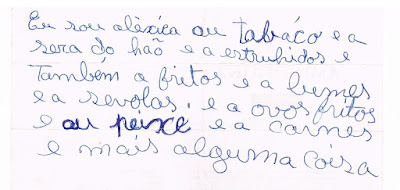 Eu sou aléxica au tabáco e a
sera do hão e a estruhidos e
também a fritos e a lumes
e a sevolas. e a ovos fritos
e au peixe e a carnes
e mais alguma coisa